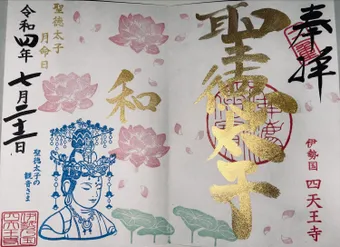 奉拝
聖徳太子
伊勢国 四天王寺
和
聖徳太子
月命日
令和四年 七月二十二日
聖徳太子の
観音さま